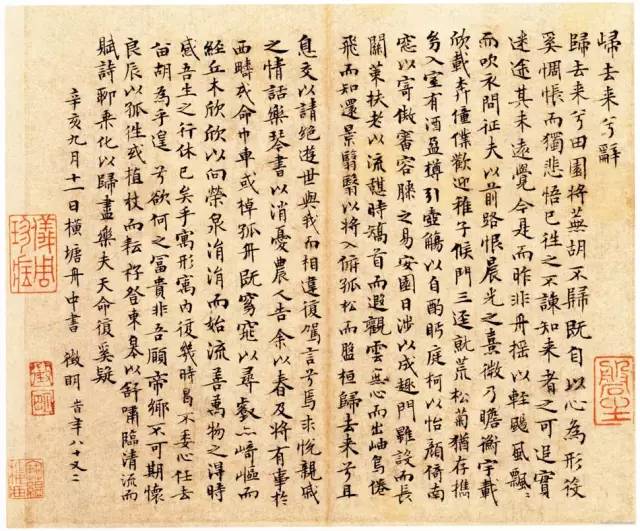 歸去来兮辭
歸去来兮田園將蕪胡不歸既自以心為形役
奚惆悵而獨悲悟已往之不諫知来者之可追實
迷途其未遠覺今是而昨非舟搖以輕颺風飄〻
而吹衣問征夫以前路恨晨光之熹微乃瞻衡宇載
欣載奔僮僕歡迎稚子候門三逕就荒松菊猶存攜
幼入室有酒盈樽引壺觴以自酌眄庭柯以怡顏倚南
窓以寄傲審容膝之易安園日涉以成趣門雖設而長
關策扶老以流憩時矯首而遐觀雲無心而出岫鳥倦
飛而知還景翳翳以將入撫孤松而盤桓歸去来兮且
息交以請絕遊世與我而相違復駕言兮焉求悅親戚
之情話樂琴書以消憂農人告余以春及將有事於
西疇或命巾車或棹孤舟既窈窕以尋壑亦崎嶇而
經丘木欣欣以向榮泉涓涓而始流善萬物之得時
感吾生之行休已矣乎寓形寓內復幾時曷不委心任去
留胡為乎遑〻兮欲何之富貴非吾願帝鄉不可期懷
良辰以孤往或植杖而耘耔登東皋以舒嘯臨清流而
賦詩聊乘化以歸盡樂夫天命復奚疑
辛亥九月十一日橫塘舟中書 徵明 時年八十又二
儀周珍藏
徵明